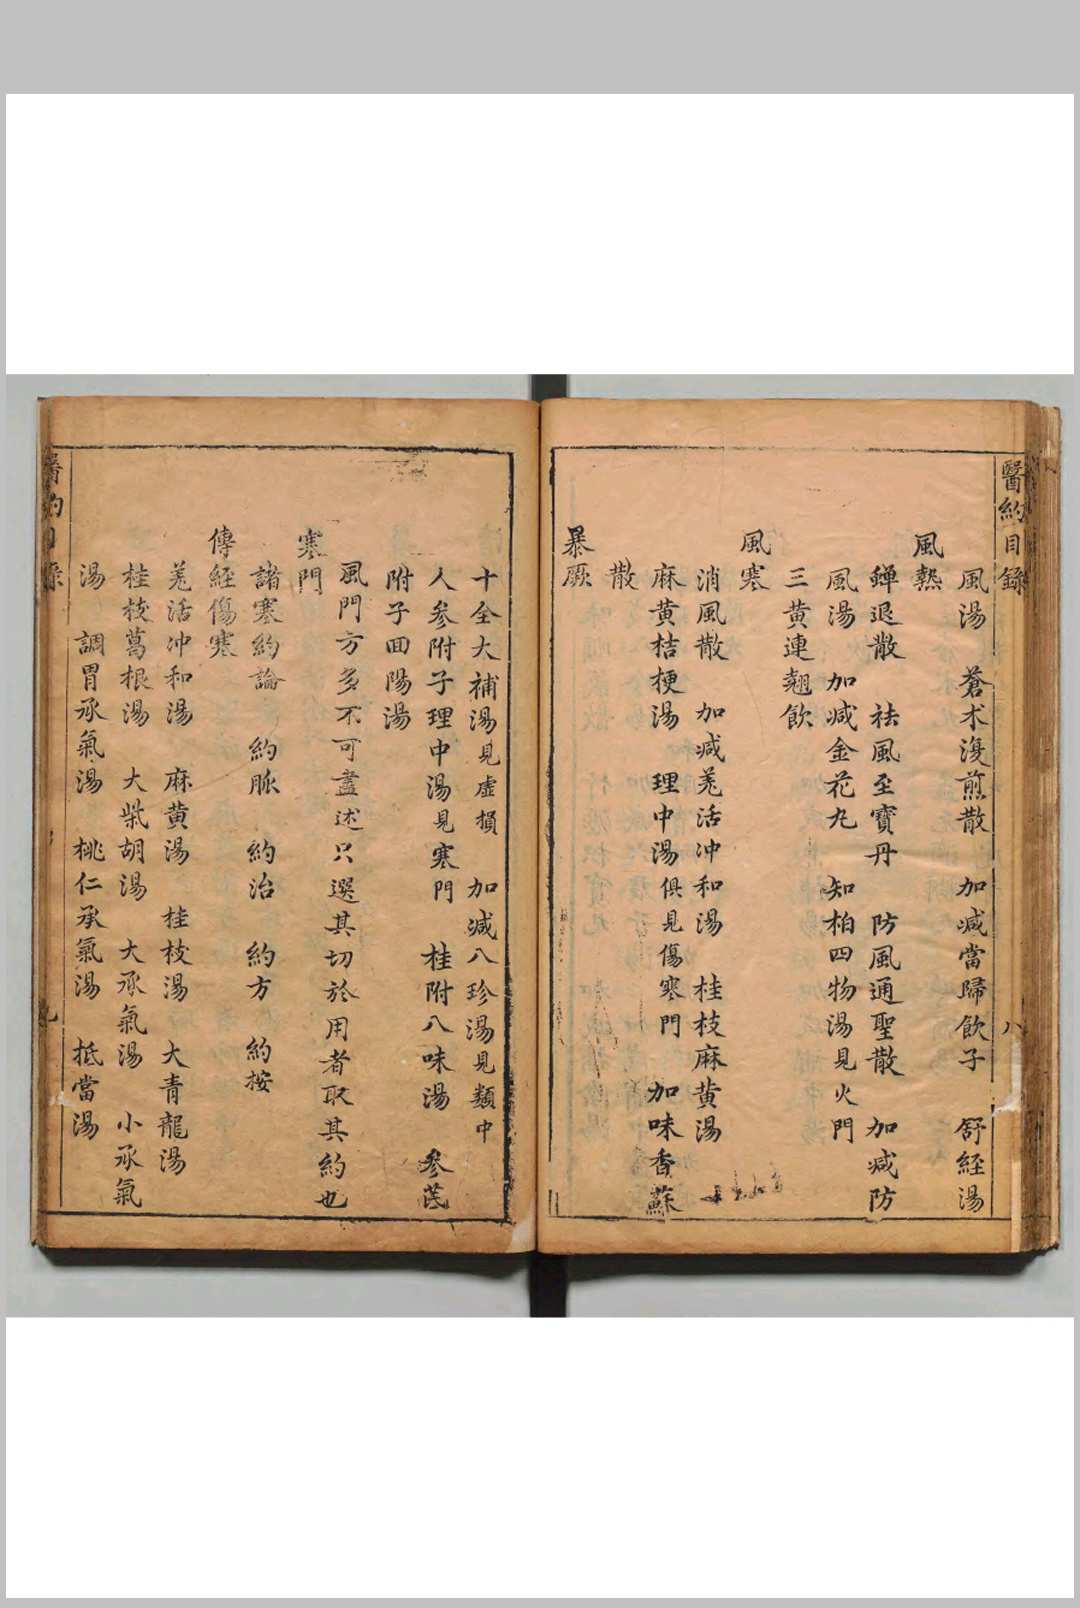 醫約目錄 八
風湯 蒼术復煎散 加減當歸飲子 舒経湯
風熱
蟬退散 祛風至寶丹 防風通聖散 加減防
風湯 加减金花丸 知柏四物湯見火門
三黄連翹飲
風寒
消風散 加减羗活冲和湯 桂枝麻黄湯
麻黄桔梗湯 理中湯俱見傷寒門 加味香蘇
散
暴厥
十全大補湯見虛損 加减八珍湯見類中
人参附子理中湯見寒門 桂附八味湯 参茋
附子回陽湯
風門方多不可盡述只選其切於用者取其約也
寒門
諸寒約論 約脈 約治 約方 約按
傳経傷寒
羗活冲和湯 麻黄湯 桂枝湯 大青龍湯
桂枝葛根湯 大柴胡湯 大承氣湯 小承氣
湯 調胃承氣湯 桃仁承氣湯 抵當湯
醫約目錄 九